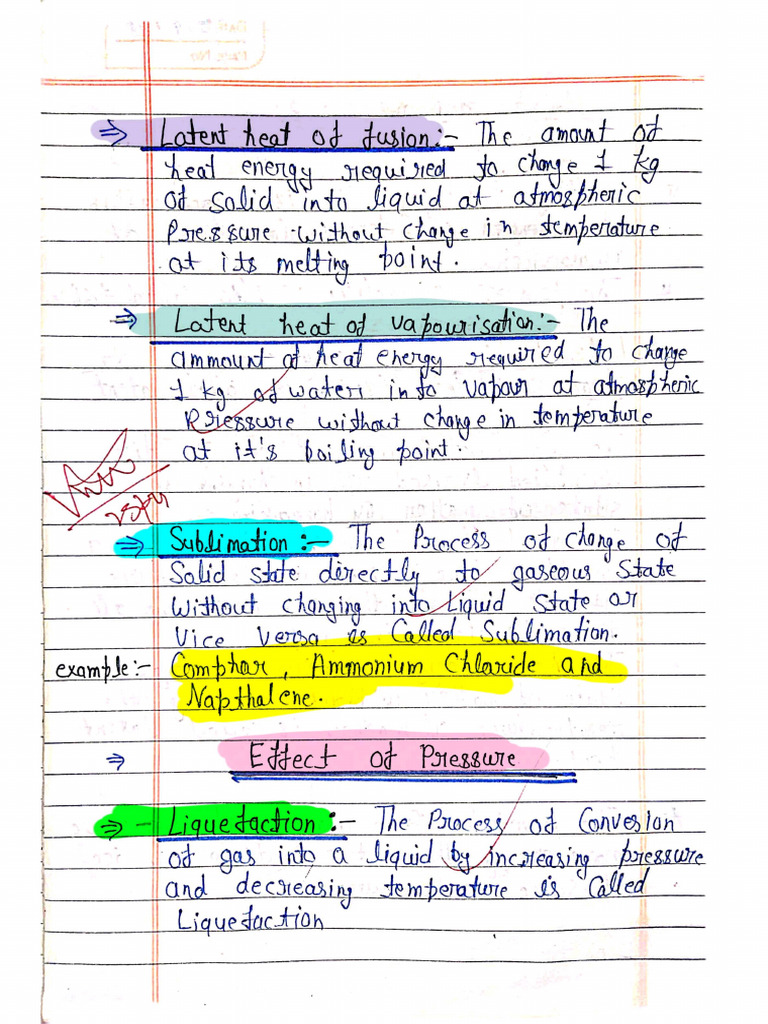 ⇒ Latent heat of fusion:- The amount of
heat energy required to change 1 kg
of solid into liquid at atmospheric
Pressure without change in temperature
at its melting point.
⇒ Latent heat of vapourisation:- The
ammount of heat energy required to change
1 kg of water into vapour at atmospheric
Pressure without change in temperature
at it's boiling point.
⇒ Sublimation:- The Process of change of
Solid state directly to gaseous State
Without changing into Liquid State or
Vice Versa is Called Sublimation.
example:- Comphar, Ammonium Chloride and
Napthalene.
⇒ Effect of Pressure
⇒ - Liquefaction:- The Process of Convesion
of gas into a liquid by increasing pressure
and decreasing temperature is Called
Liquefaction